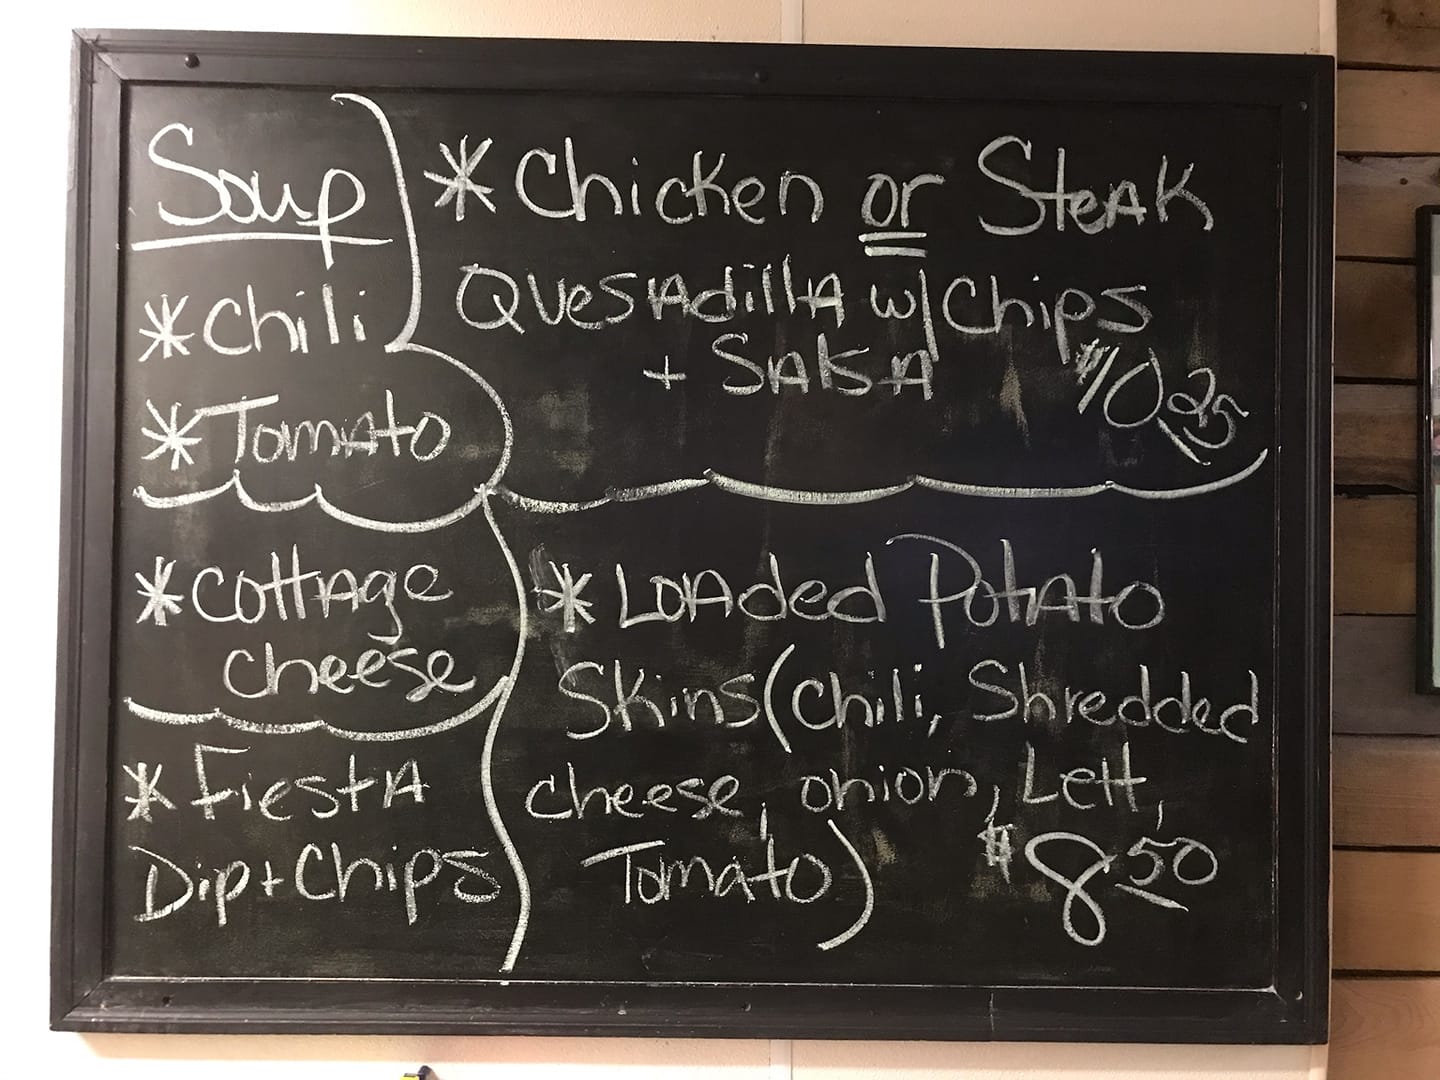 Soup
*Chili
*Tomato
*Chicken or Steak
Quesadilla w/Chips
+ Salsa
$10.25
*Cottage
cheese
*Fiesta
Dip+Chips
*Loaded Potato
Skins(Chili, Shredded
cheese, onion, Lett,
Tomato)
$8.50